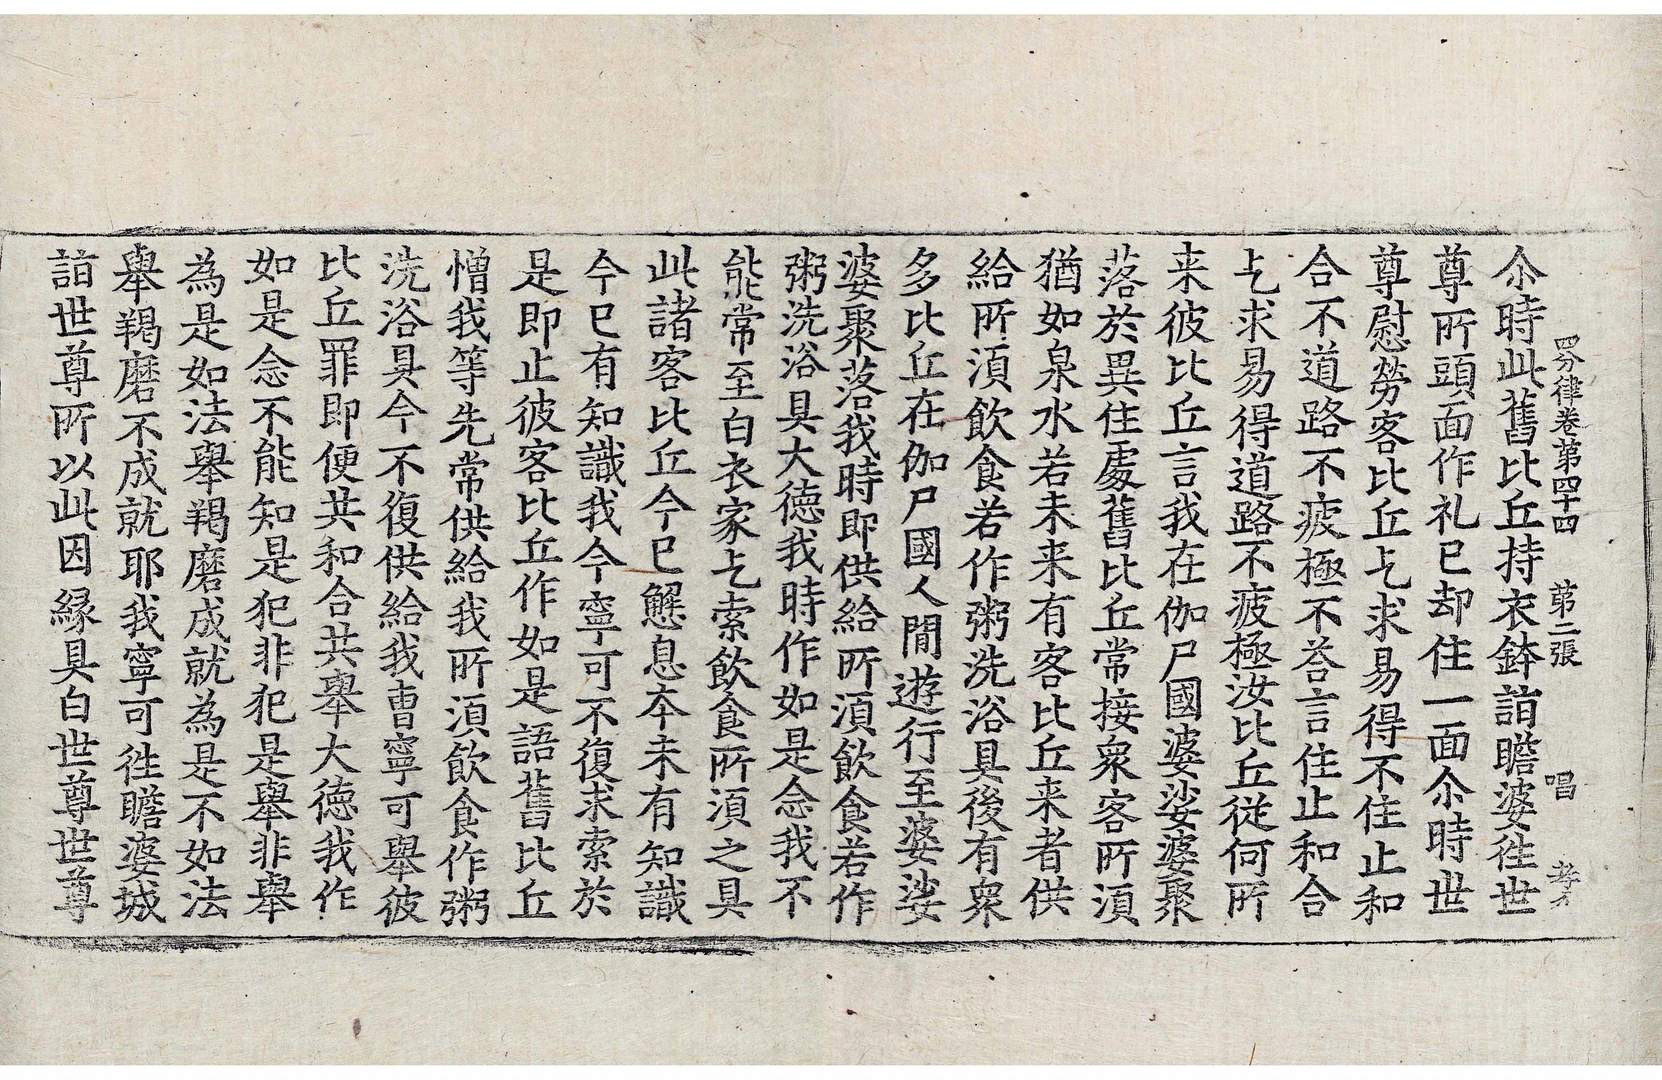 四分律卷第四十四 第二張 唱
尒時此舊比丘持衣鉢詣瞻婆徃世
尊所頭面作礼已却住一面尒時世
尊慰勞客比丘乞求易得不住止和
合不道路不疲極不荅言住止和合
乞求易得道路不疲極汝比丘從何所
来彼比丘言我在伽尸國婆娑婆聚
落於異住處舊比丘常接衆客所湏
猶如泉水若未来有客比丘来者供
給所湏飲食若作粥洗浴具後有衆
多比丘在伽尸國人間遊行至婆娑
婆聚落我時即供給所湏飲食若作
粥洗浴具大德我時作如是念我不
能常至白衣家乞索飲食所湏之具
此諸客比丘今已懈息夲未有知識
今已有知識我今寧可不復求索於
是即止彼客比丘作如是語舊比丘
憎我等先常供給我所湏飲食作粥
洗浴具今不復供給我曹寧可舉彼
比丘罪即便共和合共舉大徳我作
如是念不能知是犯非犯是舉非舉
為是如法舉羯磨成就為是不如法
舉羯磨不成就耶我寧可徃瞻婆城
詣世尊所以此因縁具白世尊世尊